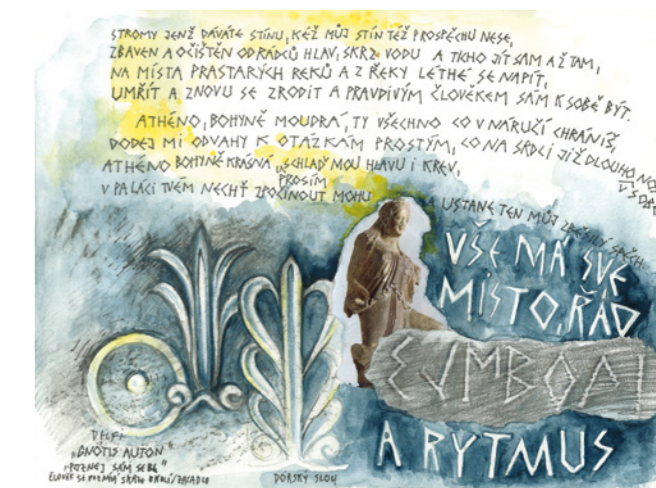 STROMY JENŽ DÁVÁTE STÍNU, KÉŽ MŮJ STÍN TÉŽ PROSPĚCHU NESE,
ZBAVEN A OČIŠTĚN OD RÁDCŮ HLAV, SKRZ VODU A TICHO JÍT SÁM AŽ TAM,
NA MÍSTA PRASTARÝCH REKŮ A Z ŘEKY LÉTHÉ SE NAPÍT,
UMŘÍT A ZNOVU SE ZRODIT A PRAVDIVÝM ČLOVĚKEM SÁM K SOBĚ BÝT.
ATHÉNO, BOHYNĚ MOUDRÁ, TY VŠECHNO CO V NÁRUČÍ CHRÁNÍŠ,
DODEJ MI ODVAHY K OTÁZKÁM PROSTÝM, CO NA SRDCI JIŽ DLOUHO
V SOBĚ
ATHÉNO BOHYNĚ KRÁSNÁ, SCHLAĎ MOU HLAVU I KREV,
PROSÍM
V PALÁCI TVÉM NECHŤ SPOČINOUT MOHU
A USTANE TEN MŮJ ZBĚSILÝ SPĚCH
VŠE MÁ SVÉ
MÍSTO, ŘÁD
A RYTMUS
DELFI
"GNÓTIS AUTON"
"POZNEJ SÁM SEBE"
ČLOVĚK SE POZNÁ SKRZE OKOLÍ/ZRCADLO
DÓRSKÝ SLOH